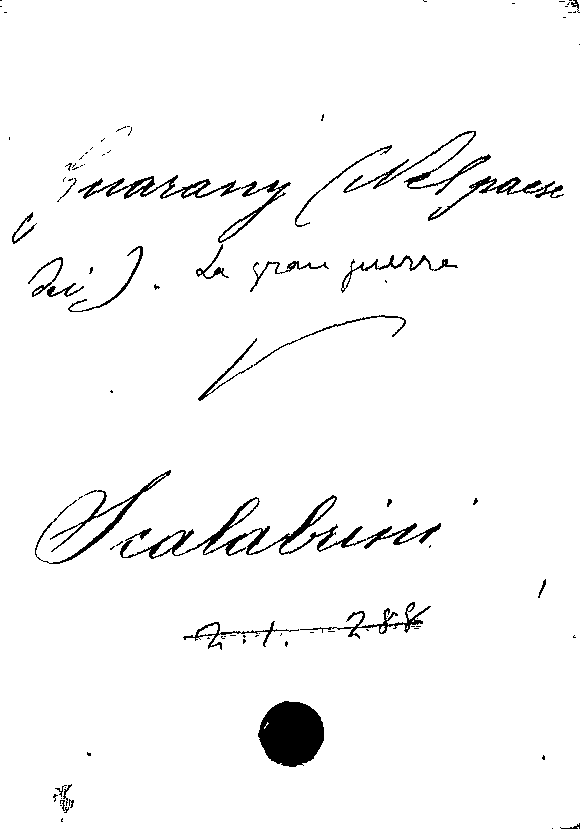 Guarany (Nel paese
dei). La gran guerra
Scalabrini
2. 1. 288